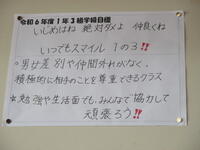 令和6年度1年3組学級目標
いじめはね 絶対ダメよ 仲良くね
いつでもスマイル 1の3!!
○男女差別や仲間外れがなく、
積極的に相手のことを尊重できるクラス
☆勉強や生活面でも、みんなで協力して
頑張ろう!!